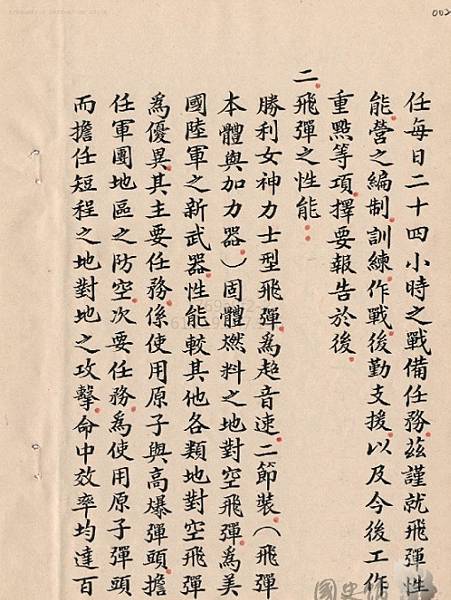 002
任每日二十四小時之戰備任務茲謹就飛彈性
能營之編制訓練作戰後勤支援以及今後工作
重點等項擇要報告於後
二飛彈之性能：
勝利女神力士型飛彈為超音速二節裝（飛彈
本體與加力器）固體燃料之地對空飛彈為美
國陸軍之新武器性能較其他各類地對空飛彈
為優異其主要任務係使用原子與高爆彈頭擔
任軍團地區之防空次要任務為使用原子彈頭
而擔任短程之地對地之攻擊命中效率均達百
國史館